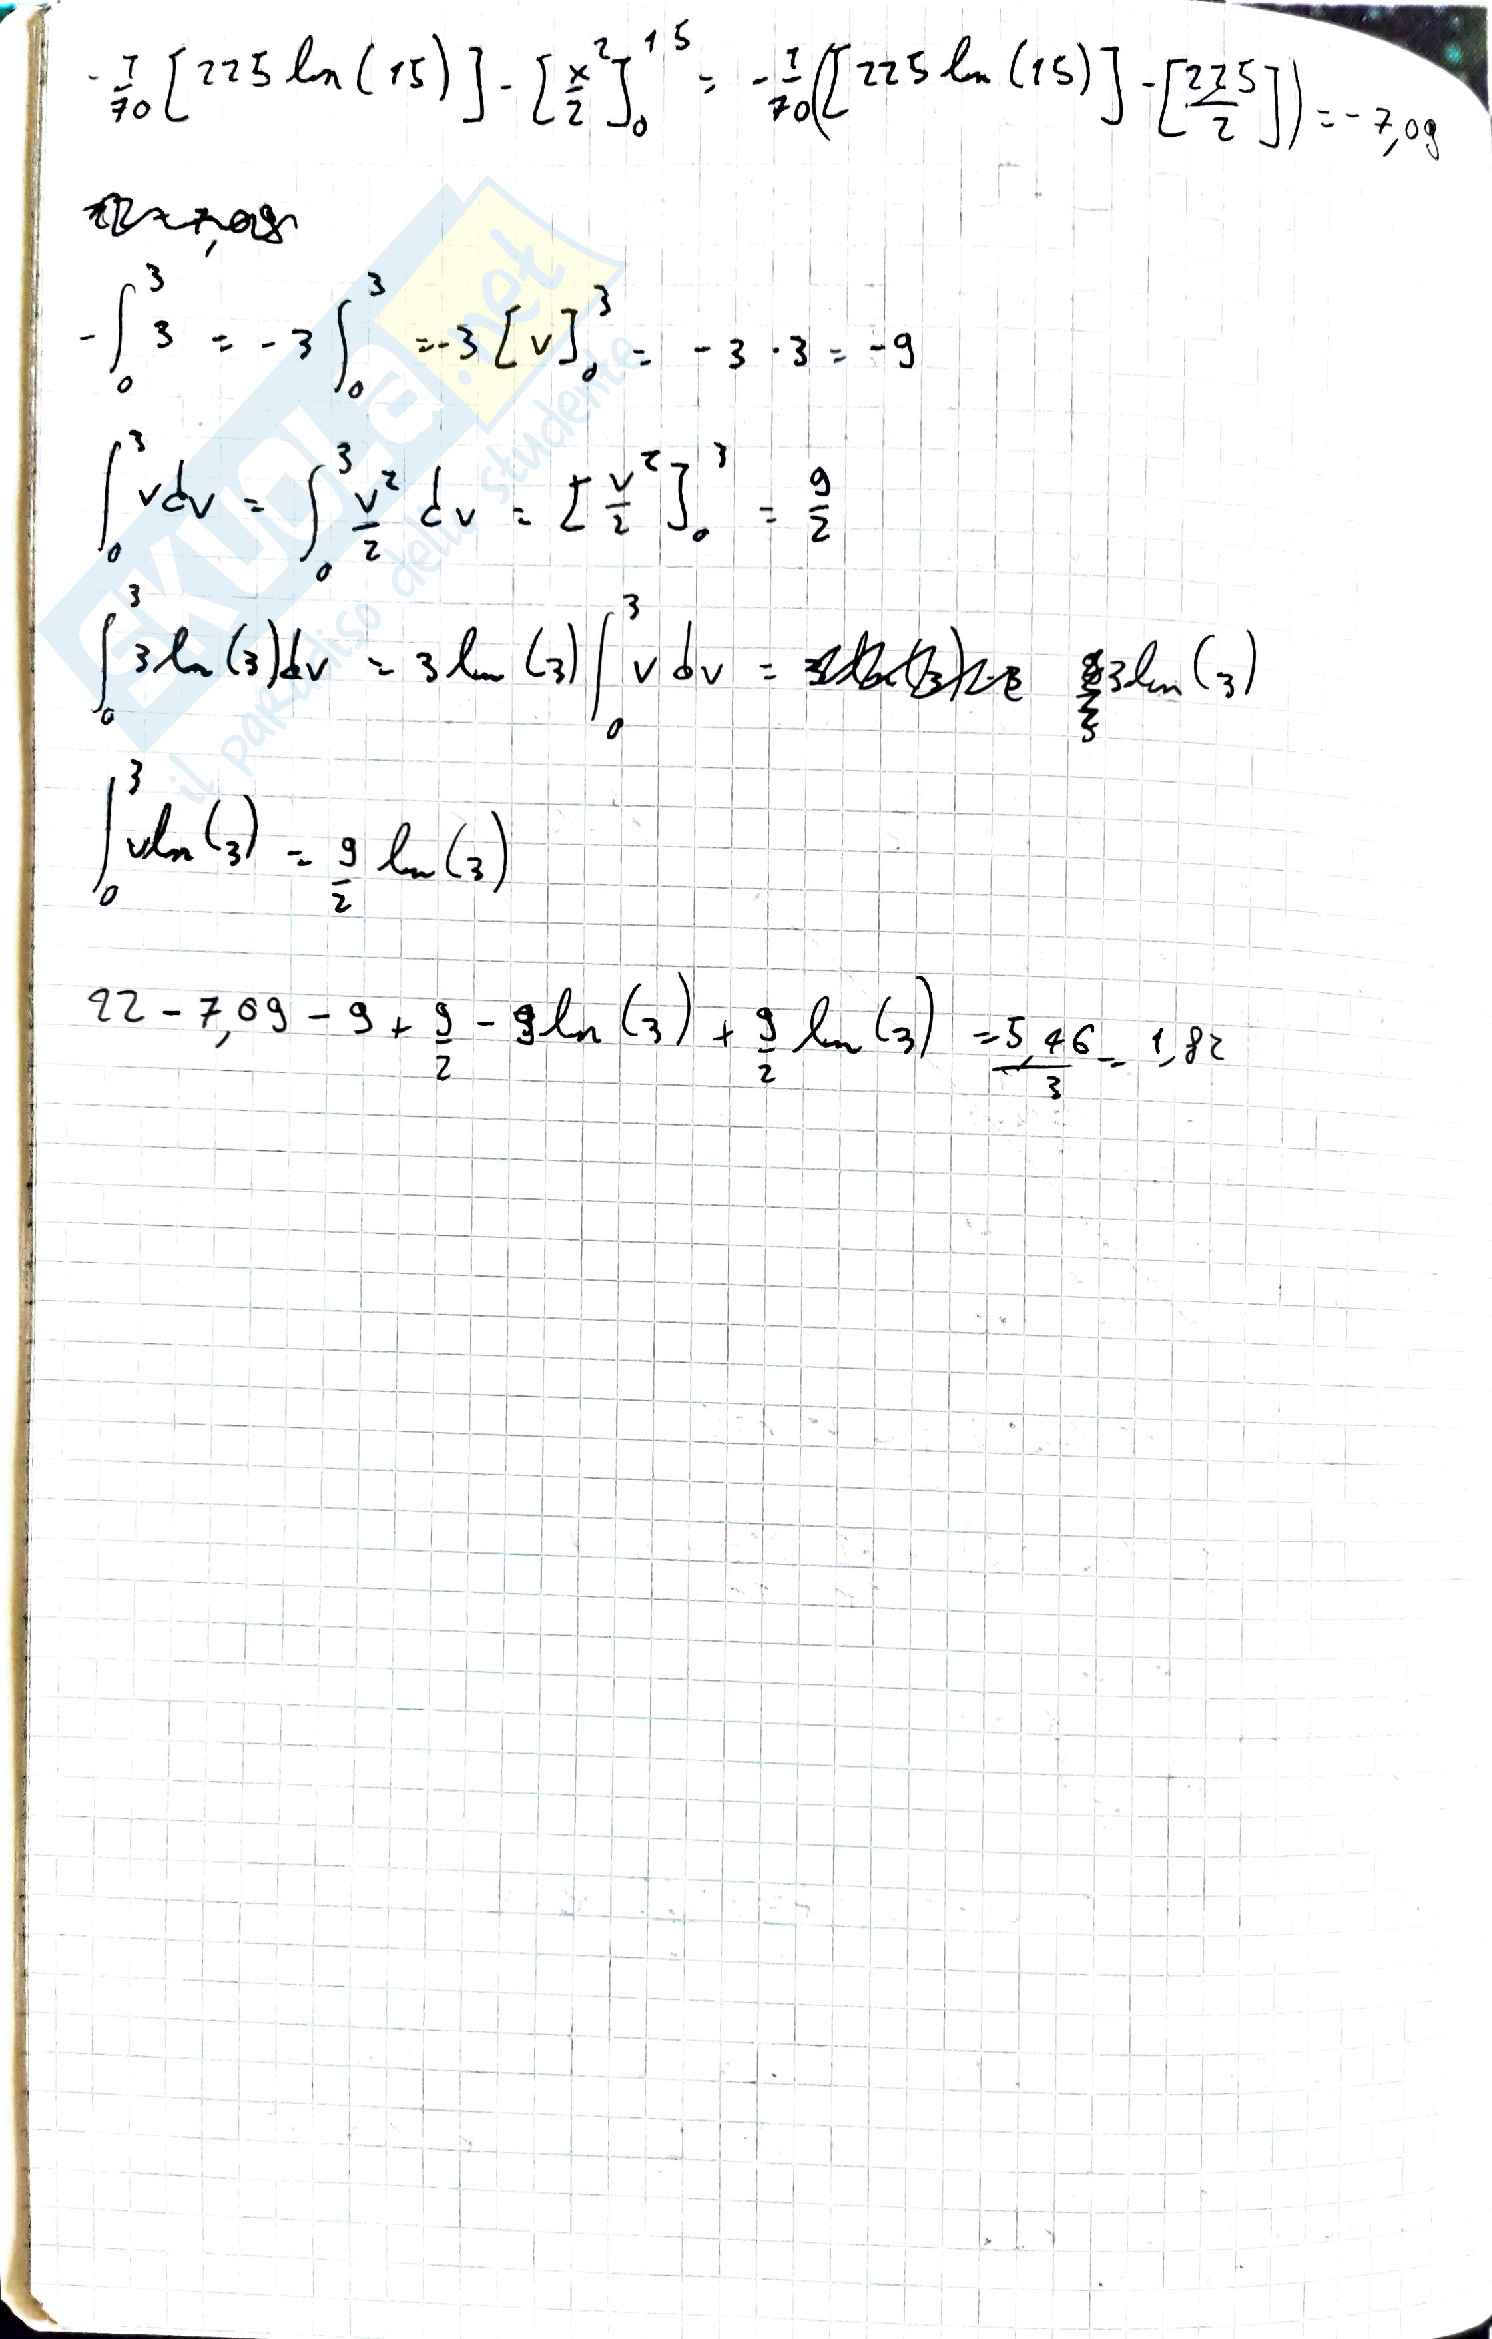 -1/70 [225 ln(15)] - [x²/2]₀¹⁵ = -1/70 ([225 ln(15)] - [225/2]) = -7,09
-∫₀³ 3 = -3 ∫₀³ = -3 [v]₀³ = -3 · 3 = -9
∫₀³ v dv = ∫₀³ v²/2 dv = [v²/2]₀³ = 9/2
∫₀³ 3 ln(3) dv = 3 ln(3) ∫₀³ v dv = 3 ln(3)
∫₀³ v ln(3) = 9/2 ln(3)
22 - 7,09 - 9 + 9/2 - 9 ln(3) + 9/2 ln(3) = 5,46/3 = 1,82
SKUOLA.net
il paradiso dello studente